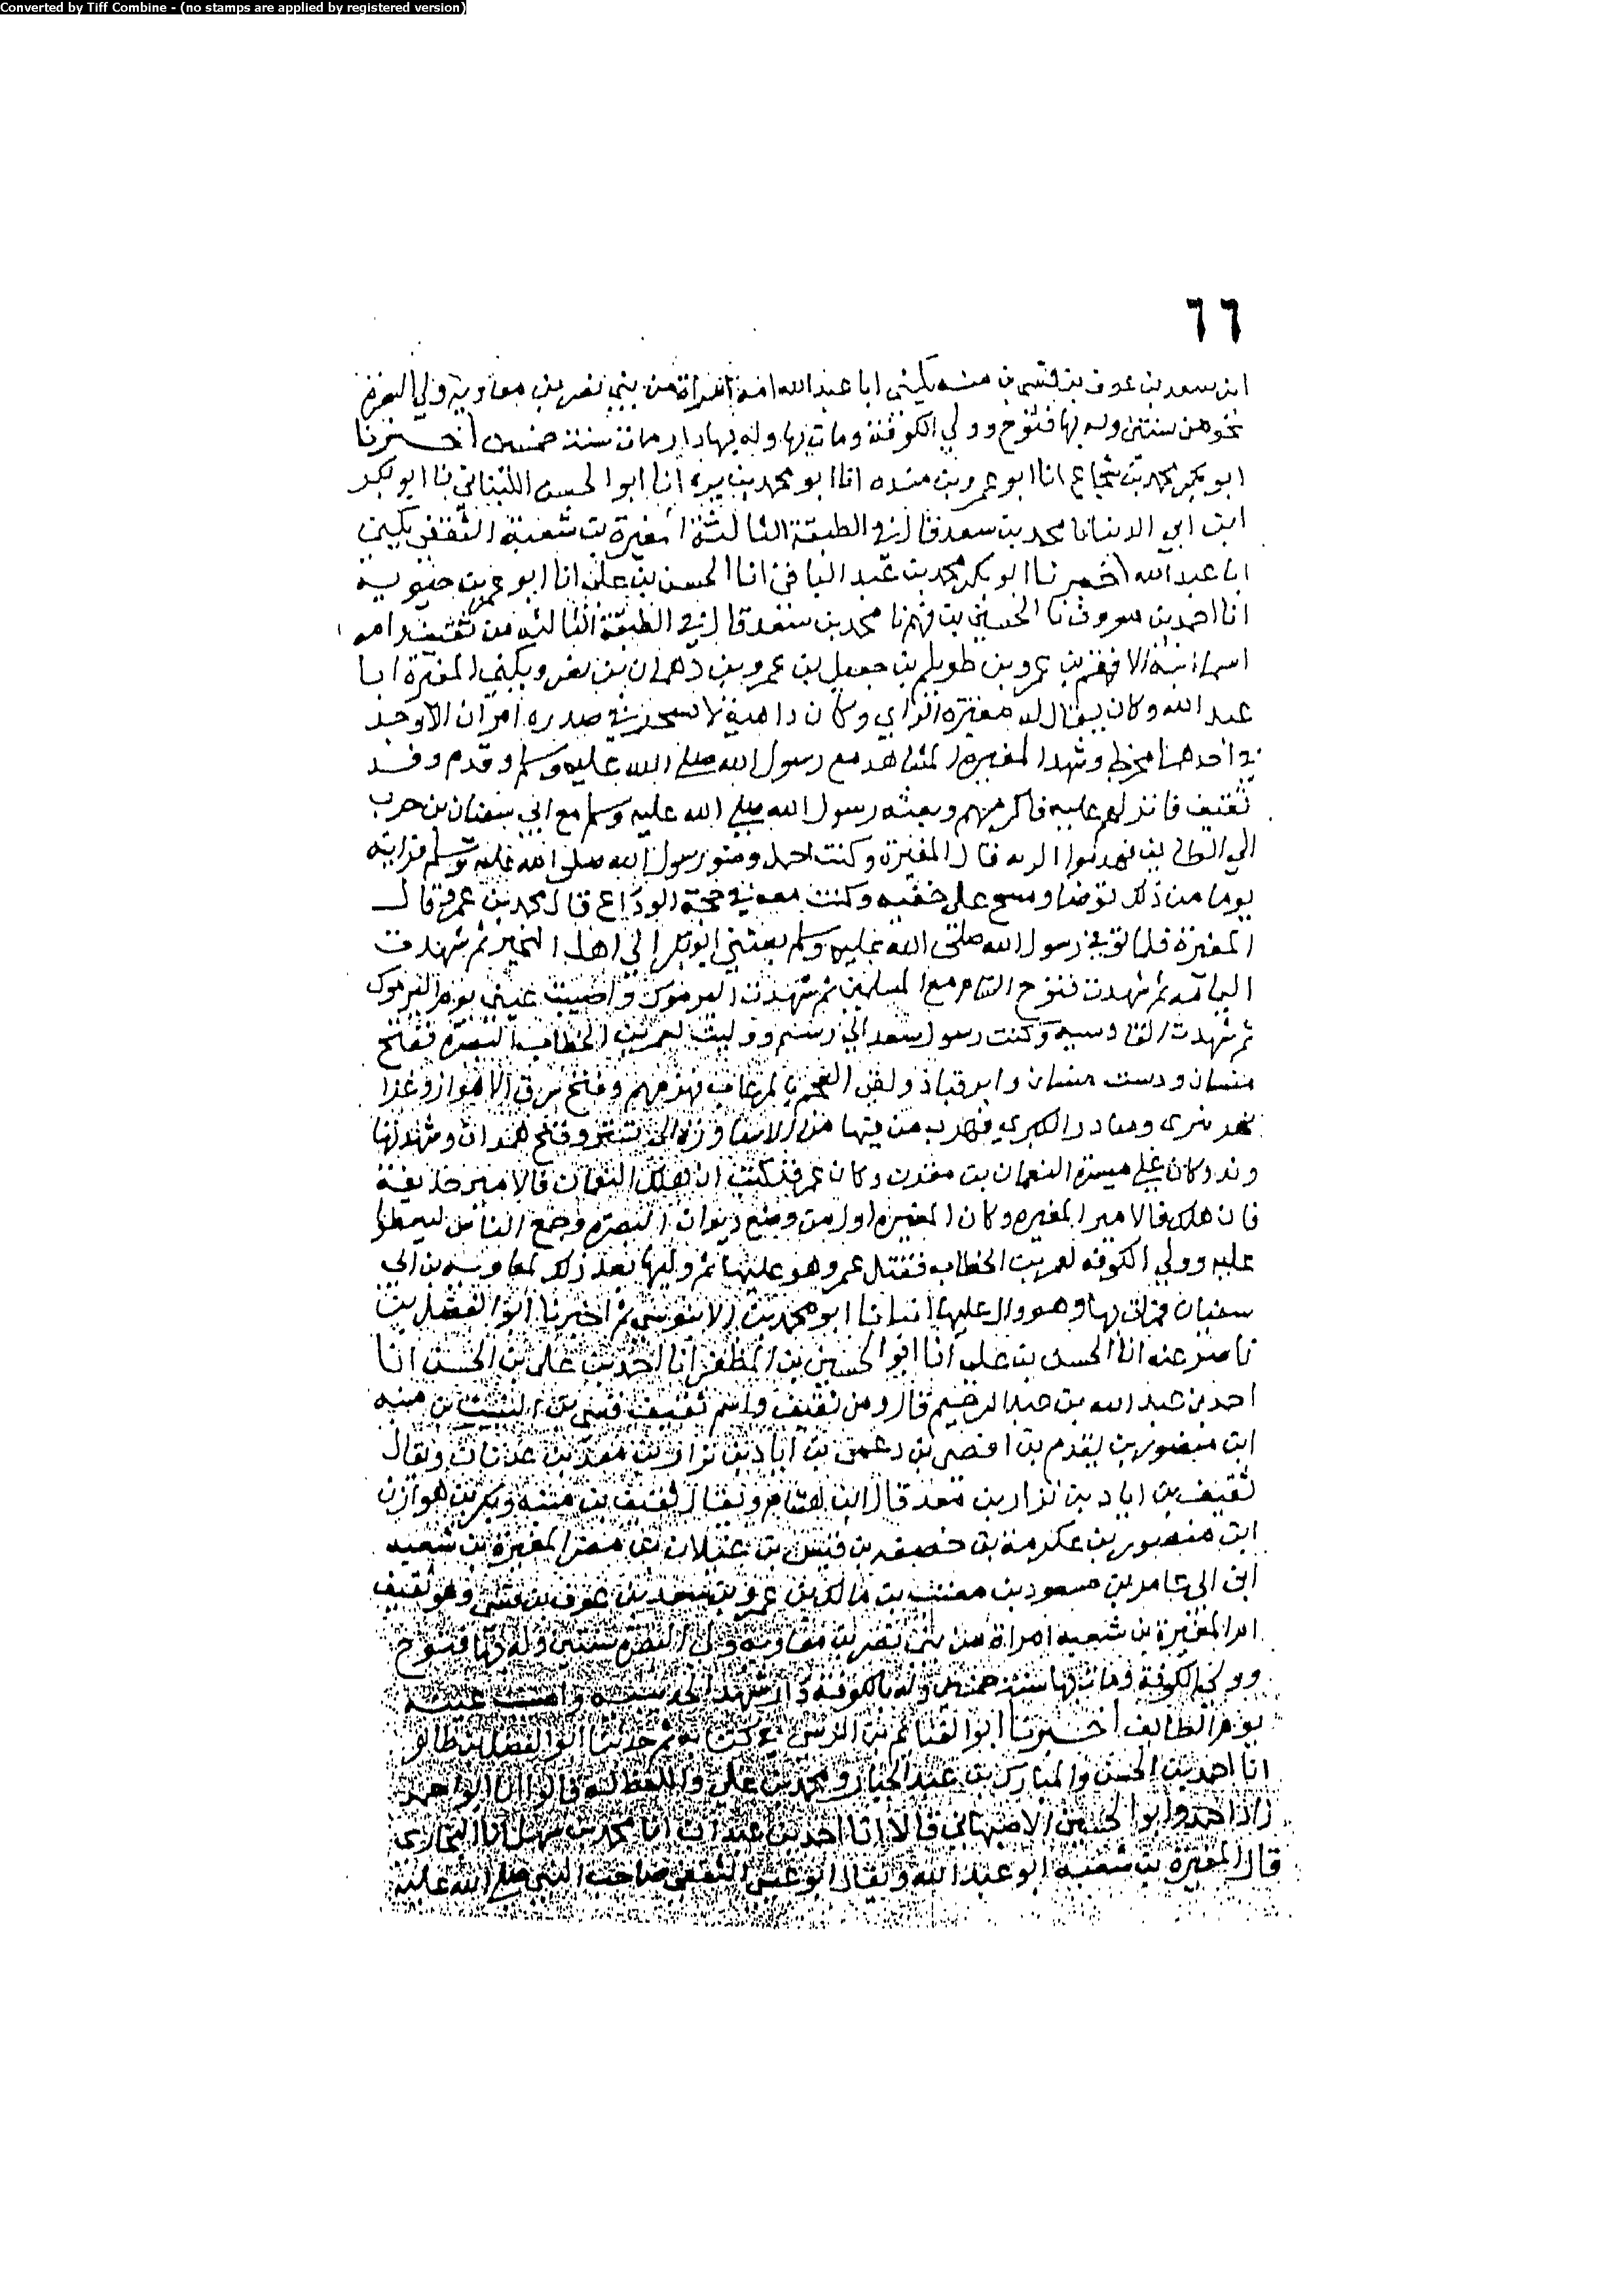 Converted by Tiff Combine - (no stamps are applied by registered version)
٦٦
ابن سعد بن عوف بن قسي بن منبه يكنى ابا عبد الله امه امراة من بني نصر بن معاوية ولي البصرة
نحو من سنتين وله بها فتوح وولي الكوفة ومات بها وله بها دار مات سنة خمسين اخبرنا
ابو بكر محمد بن شجاع انا ابو عمرو بن منده انا ابو محمد بن يوه انا ابو الحسن اللبناني نا ابو بكر
ابن ابي الدنيا نا محمد بن سعد قال في الطبقة الثالثة المغيرة بن شعبة الثقفي يكنى
ابا عبد الله اخبرنا ابو بكر محمد بن عبد الباقي انا الحسن بن علي انا ابو عمر بن حيويه
انا احمد بن معروف نا الحسين بن فهم نا محمد بن سعد قال في الطبقة الثالثة من ثقيف امه
اسما ابنة الافقم بن عمرو بن طويلم بن جعيل بن عمرو بن دهمان بن نصر ويكنى المغيرة ابا
عبد الله وكان يقال له مغيرة الراي وكان داهية لا يشتجر في صدره امران الا وجد
في احدهما مخرجا وشهد المغيرة المشاهد مع رسول الله صلى الله عليه وسلم وقدم وفد
ثقيف فانزلهم عليه فاكرمهم وبعثه رسول الله صلى الله عليه وسلم مع ابي سفيان بن حرب
الي الطايف فهدموا الربة قال المغيرة وكنت احمل وضو رسول الله صلى الله عليه وسلم فرايته
يوما من ذلك توضا ومسح على خفيه وكنت معه في حجة الوداع قال محمد بن عمر قال
المغيرة فلما توفي رسول الله صلى الله عليه وسلم بعثني ابو بكر الي اهل النجير ثم شهدت
اليمامة ثم شهدت فتوح الشام مع المسلمين ثم شهدت اليرموك واصيبت عيني يوم اليرموك
ثم شهدت القادسية وكنت رسول سعد الي رستم ووليت لعمر بن الخطاب البصرة ففتح
ميسان ودست ميسان وابرقباذ ولقي العجم بالمرغاب فهزمهم وفتح سوق الاهواز وغزا
نهر تيرى ومناذر الكبرى فهرب من فيها من الاساورة الى تستر وفتح همدان وشهد نها
وند وكان على ميسرة النعمان بن مقرن وكان عمر قد كتب ان هلك النعمان فالامير حذيفة
فان هلك فالامير المغيرة وكان المغيرة اول من وضع ديوان البصرة وجمع الناس ليعطوا
عليه وولي الكوفة لعمر بن الخطاب فقتل عمر وهو عليها ثم وليها بعد ذلك لمعاوية بن ابي
سفيان فمات بها وهو وال عليها انبانا ابو محمد بن الابنوسي ثم اخبرنا ابو الفضل بن
ناصر عنه انا الحسن بن علي انا ابو الحسين بن المظفر انا احمد بن علي بن الحسن انا
احمد بن عبد الله بن عبد الرحيم قال ومن ثقيف واسم ثقيف قسي بن النبيت بن منبه
ابن منصور بن يقدم بن افصى بن دعمي بن اياد بن نزار بن معد بن عدنان ويقال
ثقيف بن اياد بن نزار بن معد قال ابن هشام ويقال ثقيف بن منبه وبكر بن هوازن
ابن منصور بن عكرمة بن خصفه بن قيس بن عيلان بن مضر المغيرة بن شعبه
ابن ابي عامر بن مسعود بن معتب بن مالك بن عمرو بن سعد بن عوف بن قسي وهو ثقيف
ام المغيرة بن شعبه امراة من بني نصر بن معاوية ولي البصرة سنتين وله بها فتوح
وولي الكوفة ومات بها سنة خمسين وله بالكوفة دار شهد الحديبية واصيبت عينه
يوم الطايف اخبرنا ابو الغنايم بن النرسي في كتابه ثم حدثنا ابو الفضل بن ناصر
انا احمد بن الحسن والمبارك بن عبد الجبار ومحمد بن علي واللفظ له قالوا انا ابو احمد
زاد احمد وابو الحسين الاصبهاني قالا انا احمد بن عبدان انا محمد بن سهل انا البخاري
قال المغيرة بن شعبه ابو عبد الله ويقال ابو عيسى الثقفي صاحب النبي صلى الله عليه